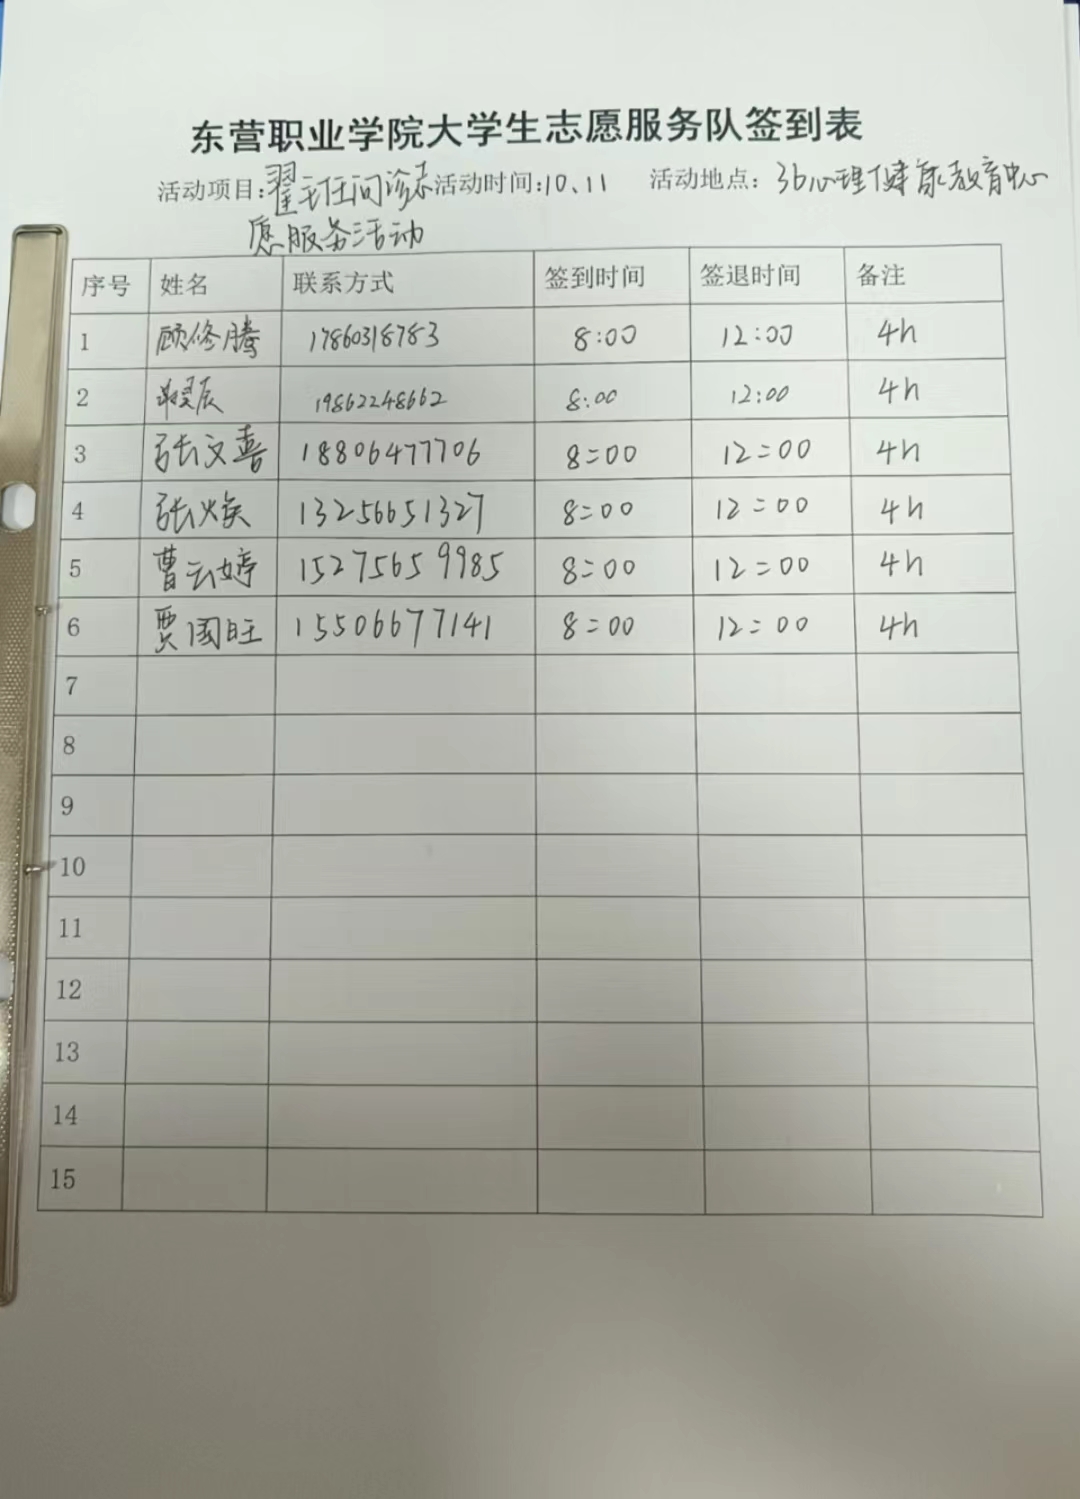 东营职业学院大学生志愿服务队签到表
活动项目:翟主任问诊志 活动时间:10、11 活动地点:3b心理健康教育中心
愿服务活动
序号 姓名 联系方式 签到时间 签退时间 备注
1 顾修腾 17860318783 8:00 12:00 4h
2 19862248662 8:00 12:00 4h
3 张文喜 18806477706 8:00 12:00 4h
4 张焕 13256651327 8:00 12:00 4h
5 曹云婷 15275659985 8:00 12:00 4h
6 贾国旺 15506677141 8:00 12:00 4h
7
8
9
10
11
12
13
14
15